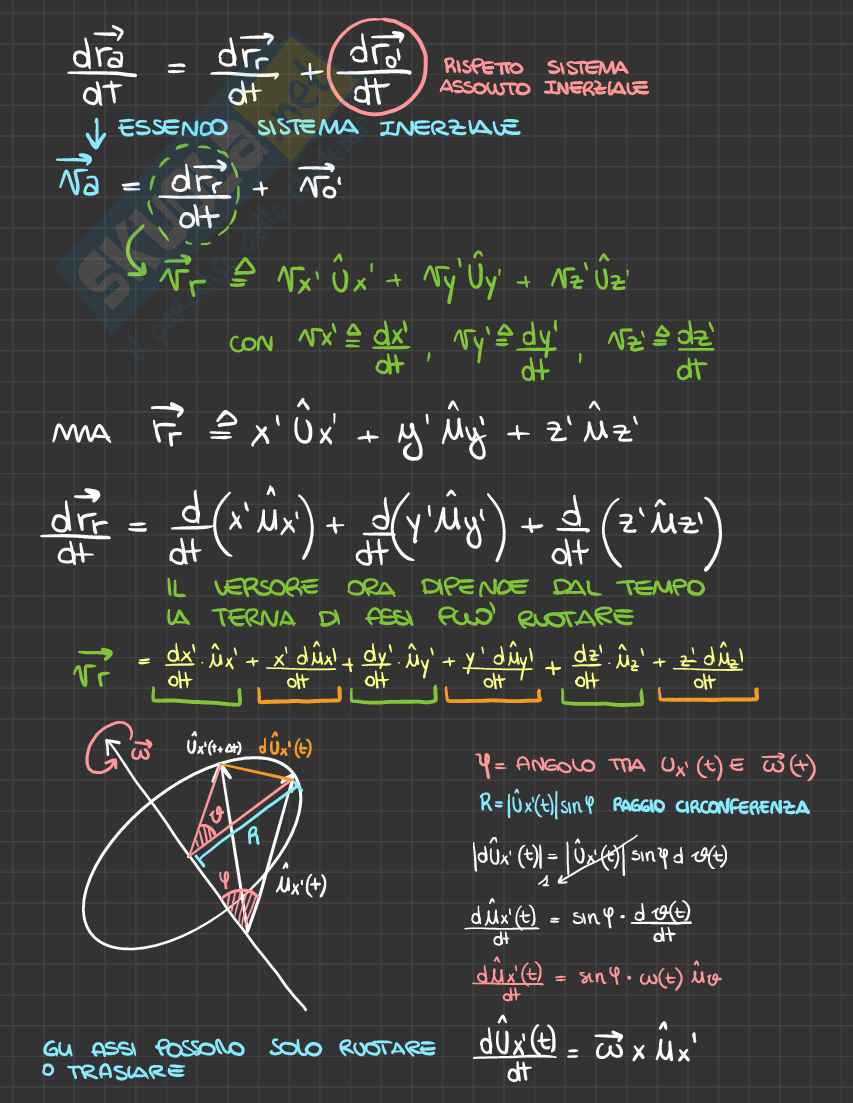 d𝐫⃗a/dt = dr⃗r/dt + dr⃗o'/dt RISPETTO SISTEMA
ASSOLUTO INERZIALE
↓ ESSENDO SISTEMA INERZIALE
v⃗a = dr⃗r/dt + v⃗o'
v⃗r ≙ vx' ûx' + vy' ûy' + vz' ûz'
CON vx' ≙ dx'/dt, vy' ≙ dy'/dt, vz' ≙ dz'/dt
MA r⃗r ≙ x' ûx' + y' ûy' + z' ûz'
dr⃗r/dt = d/dt (x' ûx') + d/dt (y' ûy') + d/dt (z' ûz')
IL VERSORE ORA DIPENDE DAL TEMPO
LA TERNA DI ASSI PUO' RUOTARE
v⃗r = dx'/dt · ûx' + x' dûx'/dt + dy'/dt · ûy' + y' dûy'/dt + dz'/dt · ûz' + z' dûz'/dt
ω⃗
ûx'(t+Δt) dûx'(t)
ϑ
R
φ
ûx'(t)
φ = ANGOLO TRA ux'(t) E ω⃗(t)
R = |ûx'(t)| sinφ RAGGIO CIRCONFERENZA
|dûx'(t)| = |ûx'(t)| sinφ d ϑ(t)
1
dûx'(t)/dt = sinφ · d ϑ(t)/dt
dûx'(t)/dt = sinφ · ω(t) ûϑ
dûx'(t)/dt = ω⃗ x ûx'
GLI ASSI POSSONO SOLO RUOTARE
O TRASLARE